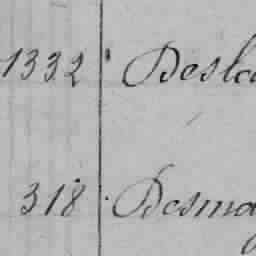 1332 Desl
318 Desma